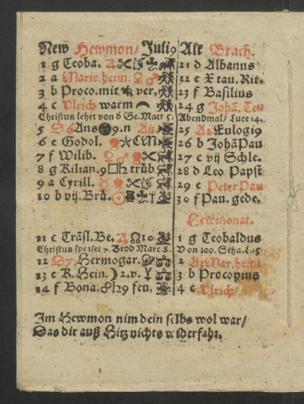 New Hewmon/ Juli9 Alt Brach.
1 g Teoba. 21 d Albanus
2 a Marie.heim. 22 e X tau. Rit.
3 b Proco.mit ver. 23 f Basilius
4 c Ulrich warm 24 g Johā. Teu
Christus lehrt von d Ge. Matt 5. Abendmal/ Luce 14.
5 Ans 9.n 25 Eulogi9
6 e Godol. 26 b JohāPau
7 f Wilib. 27 c vij Schle.
8 g Kilian.9 trüb. 28 d Leo Papst
9 a Cyrill. 29 e Peter Pau
10 b vij.Brü. 30 f Pau. gede.
Hewmonat.
11 c Träsl.Be. 10 1 g Teobaldus
Christus speiset 7. Brod Marc 8. Von 100. Scha. L 15
12 Hermogar. 2 Mar. heim
13 e K.Hein. 2.v. 3 b Procopius
14 f Bona. 29 fen. 4 c Ulrich/
Im Hewmon nim dein selbs wol war/
Das dir auß Hitz nichts widerfahr.